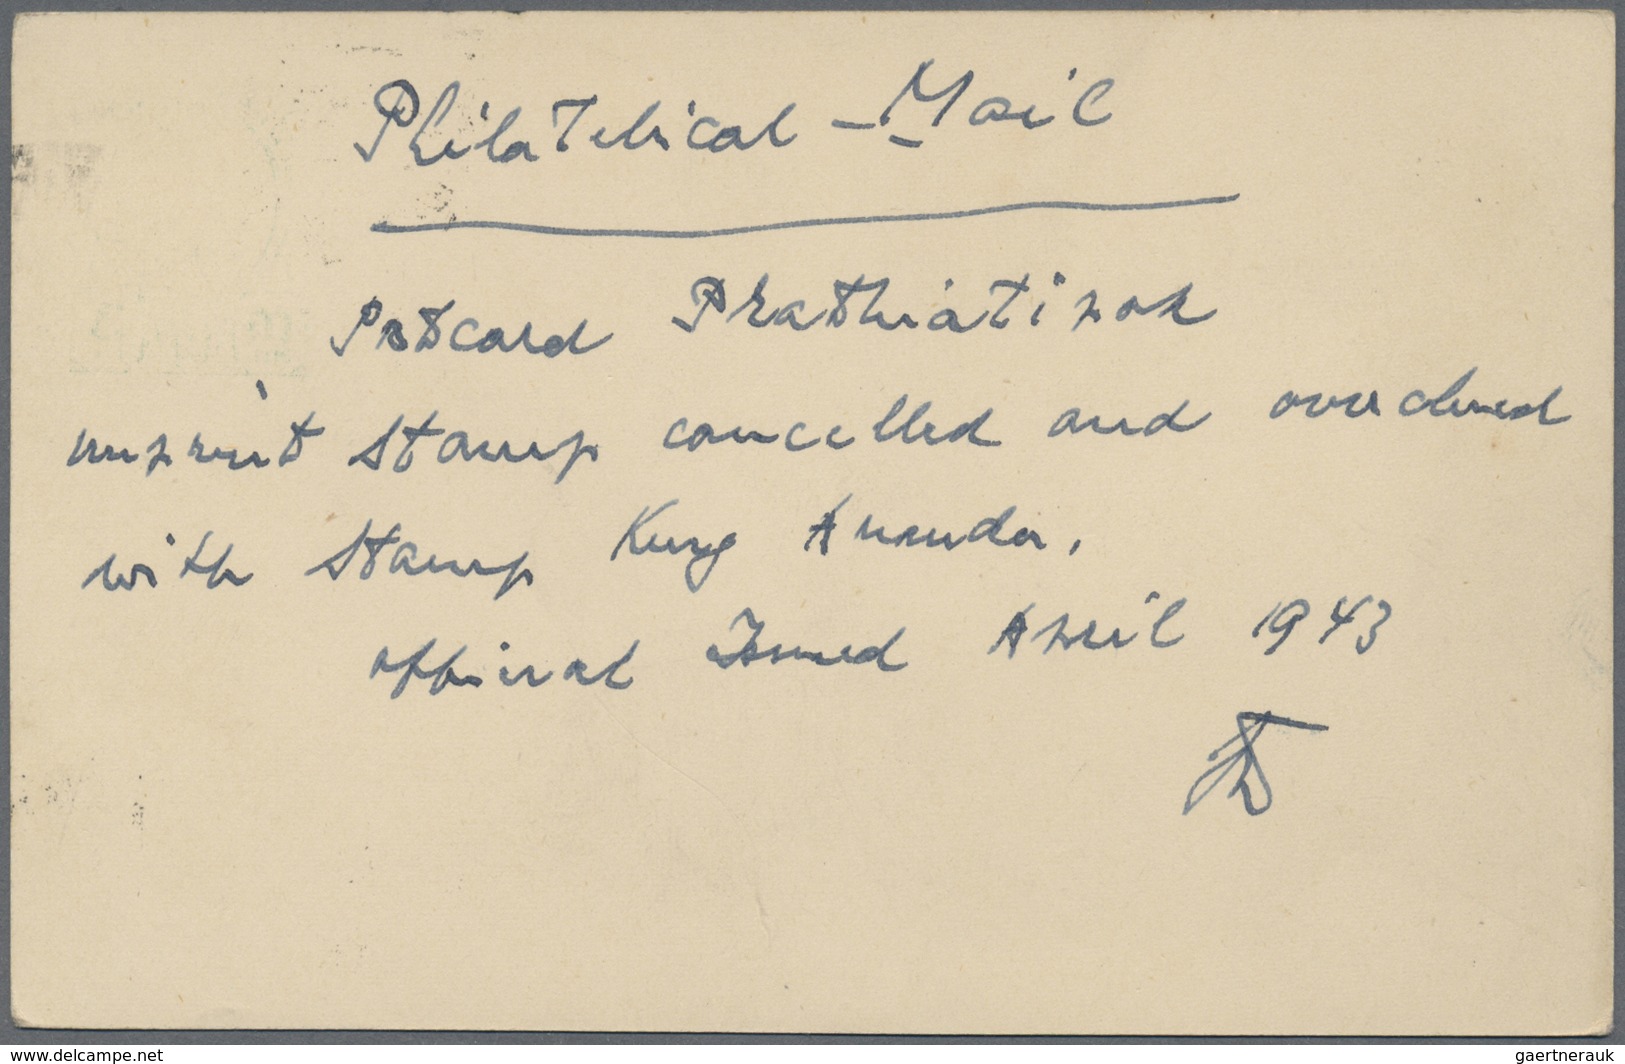 Philatelical - Mail
Postcard Prathiatipok
imprint stamp cancelled and
with stamp King Ananda.
official Issued April 1943
www.delcampe.net
gaertnerauk